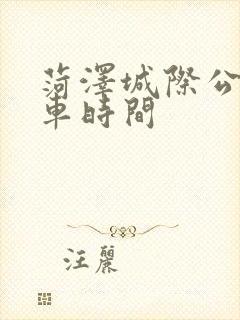 菏澤城際公
車時間
汪麗